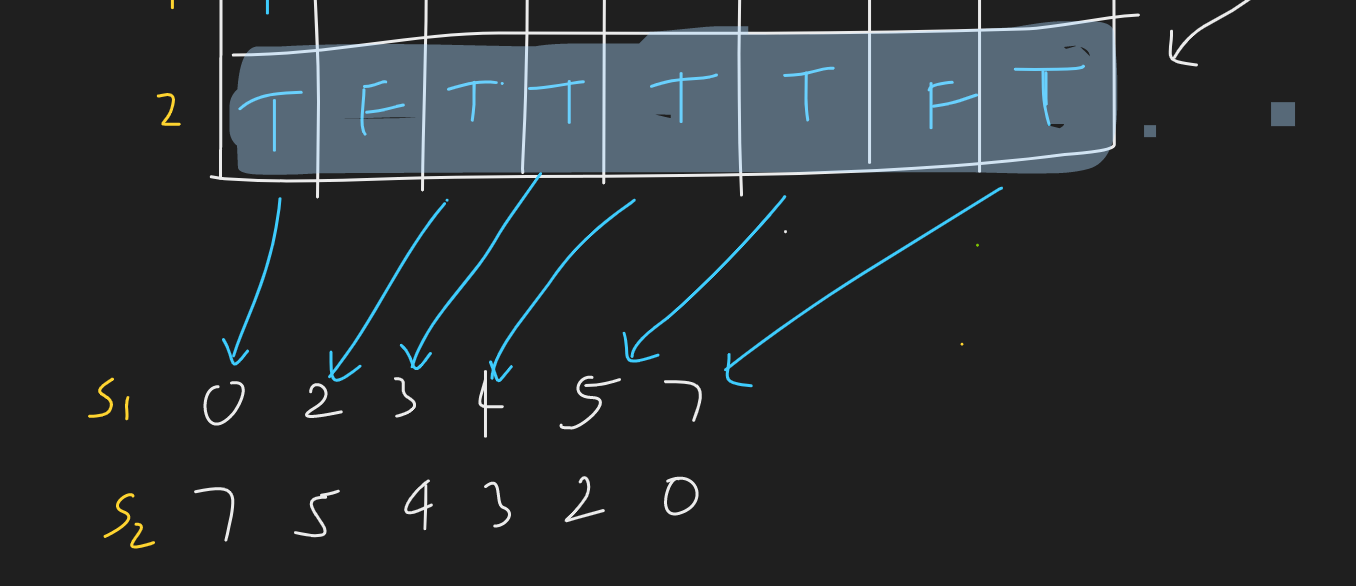 2 T F T T T T F T
S1 0 2 3 4 5 7
S2 7 5 4 3 2 0